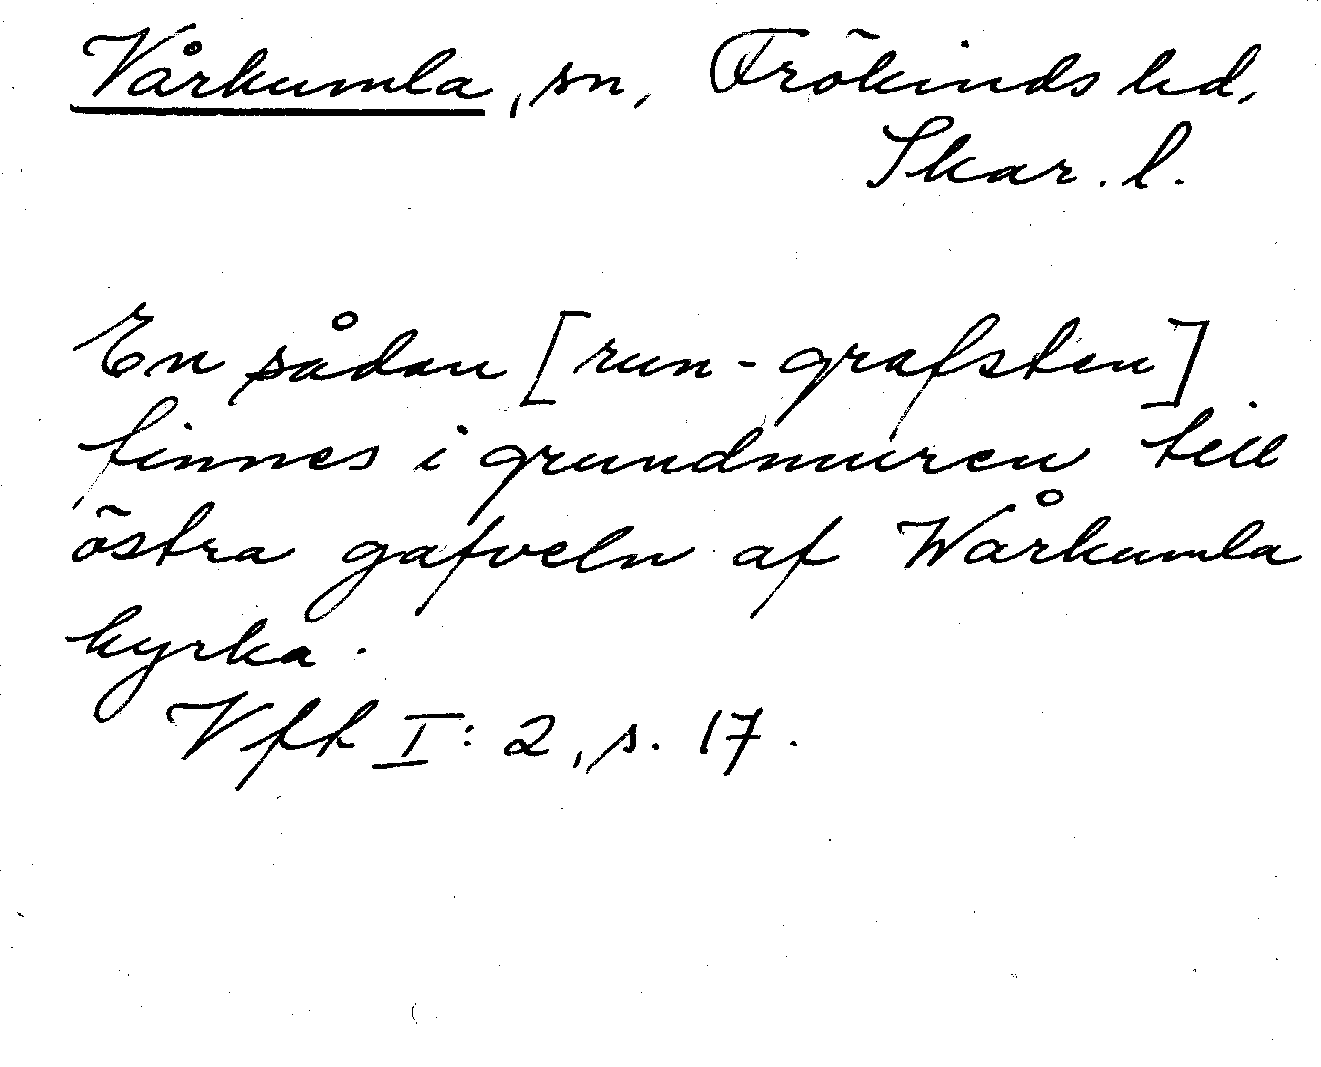 Vårkumla, sn, Frökinds hd,
Skar. l.
En sådan [run-grafsten]
finnes i grundmuren till
östra gafveln af Wårkumla
kyrka.
Vfh I: 2, s. 17.